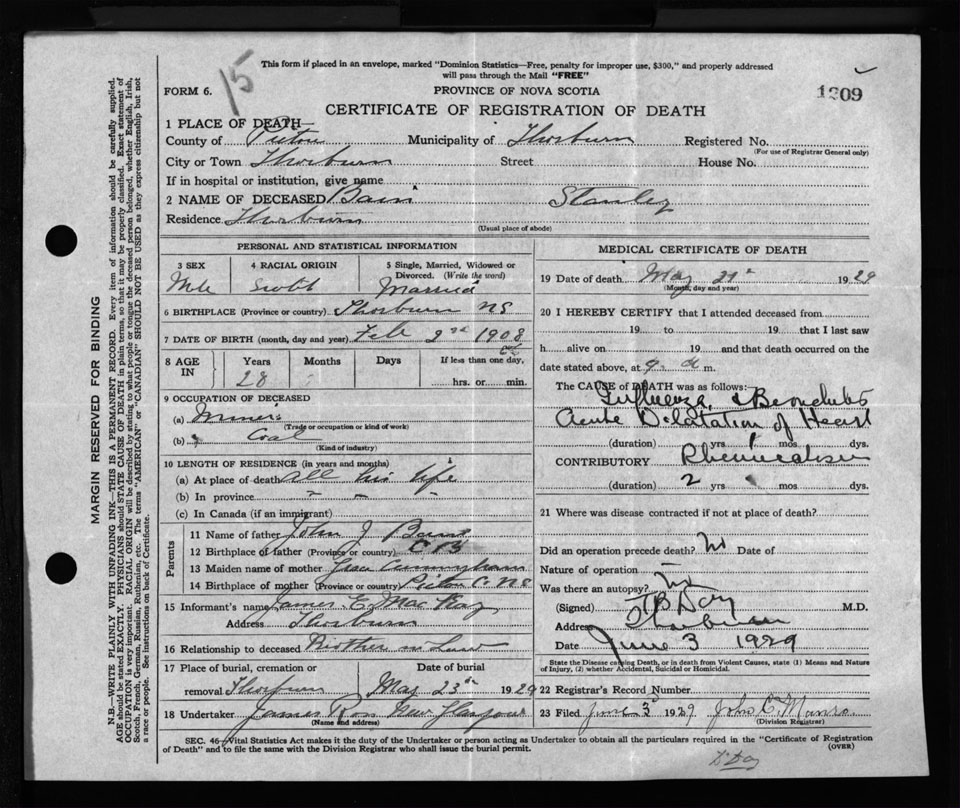 15
This form if placed in an envelope, marked "Dominion Statistics—Free, penalty for improper use, $300," and properly addressed
will pass through the Mail "FREE"
FORM 6.
PROVINCE OF NOVA SCOTIA
CERTIFICATE OF REGISTRATION OF DEATH
1 PLACE OF DEATH—
County of Pictou Municipality of Thorburn Registered No.
(For use of Registrar General only)
City or Town Thorburn Street House No.
If in hospital or institution, give name
2 NAME OF DECEASED Bain Stanley
Residence Thorburn
(Usual place of abode)
PERSONAL AND STATISTICAL INFORMATION
3 SEX 4 RACIAL ORIGIN 5 Single, Married, Widowed or
Divorced. (Write the word)
Male Married
6 BIRTHPLACE (Province or country) Thorburn NS
7 DATE OF BIRTH (month, day and year) Feb 2nd 1908
8 AGE IN Years Months Days If less than one day,
28 hrs. or min.
9 OCCUPATION OF DECEASED
(a) Miner
(Trade or occupation or kind of work)
(b) Coal
(Kind of industry)
10 LENGTH OF RESIDENCE (in years and months)
(a) At place of death all his life
(b) In province " " "
(c) In Canada (if an immigrant)
Parents
11 Name of father John J Bain
12 Birthplace of father (Province or country) C B
13 Maiden name of mother Cunningham
14 Birthplace of mother (Province or country) Pictou C NS
15 Informant's name James E MacKay
Address Thorburn
16 Relationship to deceased Brother in Law
17 Place of burial, cremation or Date of burial
removal Thorburn May 23rd 1929
18 Undertaker James Ross New Glasgow
(Name and address)
MEDICAL CERTIFICATE OF DEATH
19 Date of death May 21st 1929
(Month, day and year)
20 I HEREBY CERTIFY that I attended deceased from
19 to 19 that I last saw
h alive on 19 and that death occurred on the
date stated above, at 9 a m.
The CAUSE of DEATH was as follows:
Influenza & Bronchitis
Acute Dilatation of Heart
(duration) yrs mos dys.
CONTRIBUTORY Rheumatism
(duration) 2 yrs mos dys.
21 Where was disease contracted if not at place of death?
Did an operation precede death? No Date of
Nature of operation
Was there an autopsy? No
(Signed) Day M.D.
Address Thorburn
Date June 3 1929
State the Disease causing Death, or in death from Violent Causes, state (1) Means and Nature
of Injury, (2) whether Accidental, Suicidal or Homicidal.
22 Registrar's Record Number
23 Filed June 3 1929 John C Munro
(Division Registrar)
SEC. 46—Vital Statistics Act makes it the duty of the Undertaker or person acting as Undertaker to obtain all the particulars required in the "Certificate of Registration
of Death" and to file the same with the Division Registrar who shall issue the burial permit.
(OVER)
Dr Day
MARGIN RESERVED FOR BINDING
N.B.—WRITE PLAINLY WITH UNFADING INK—THIS IS A PERMANENT RECORD. Every item of information should be carefully supplied.
AGE should be stated EXACTLY. PHYSICIANS should STATE CAUSE OF DEATH in plain terms, so that it may be properly classified. Exact statement of
OCCUPATION is very important. RACIAL ORIGIN will be described by stating to what people or tongue the deceased person belonged, whether English, Irish,
Scotch, French, German, Russian, Ruthenian, etc. The terms "AMERICAN" or "CANADIAN" SHOULD NOT BE USED as they express citizenship but not
a race or people. See instructions on back of Certificate.